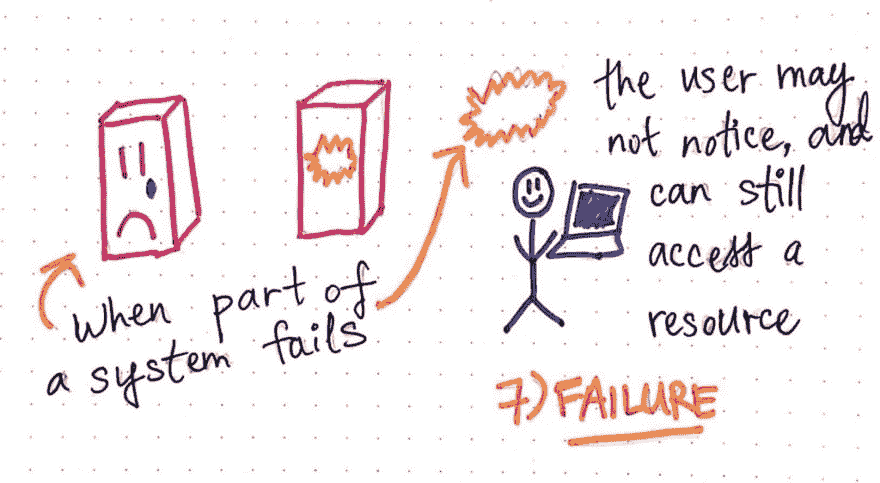 When part of
a system fails
the user may
not notice, and
can still
access a
resource
7) FAILURE